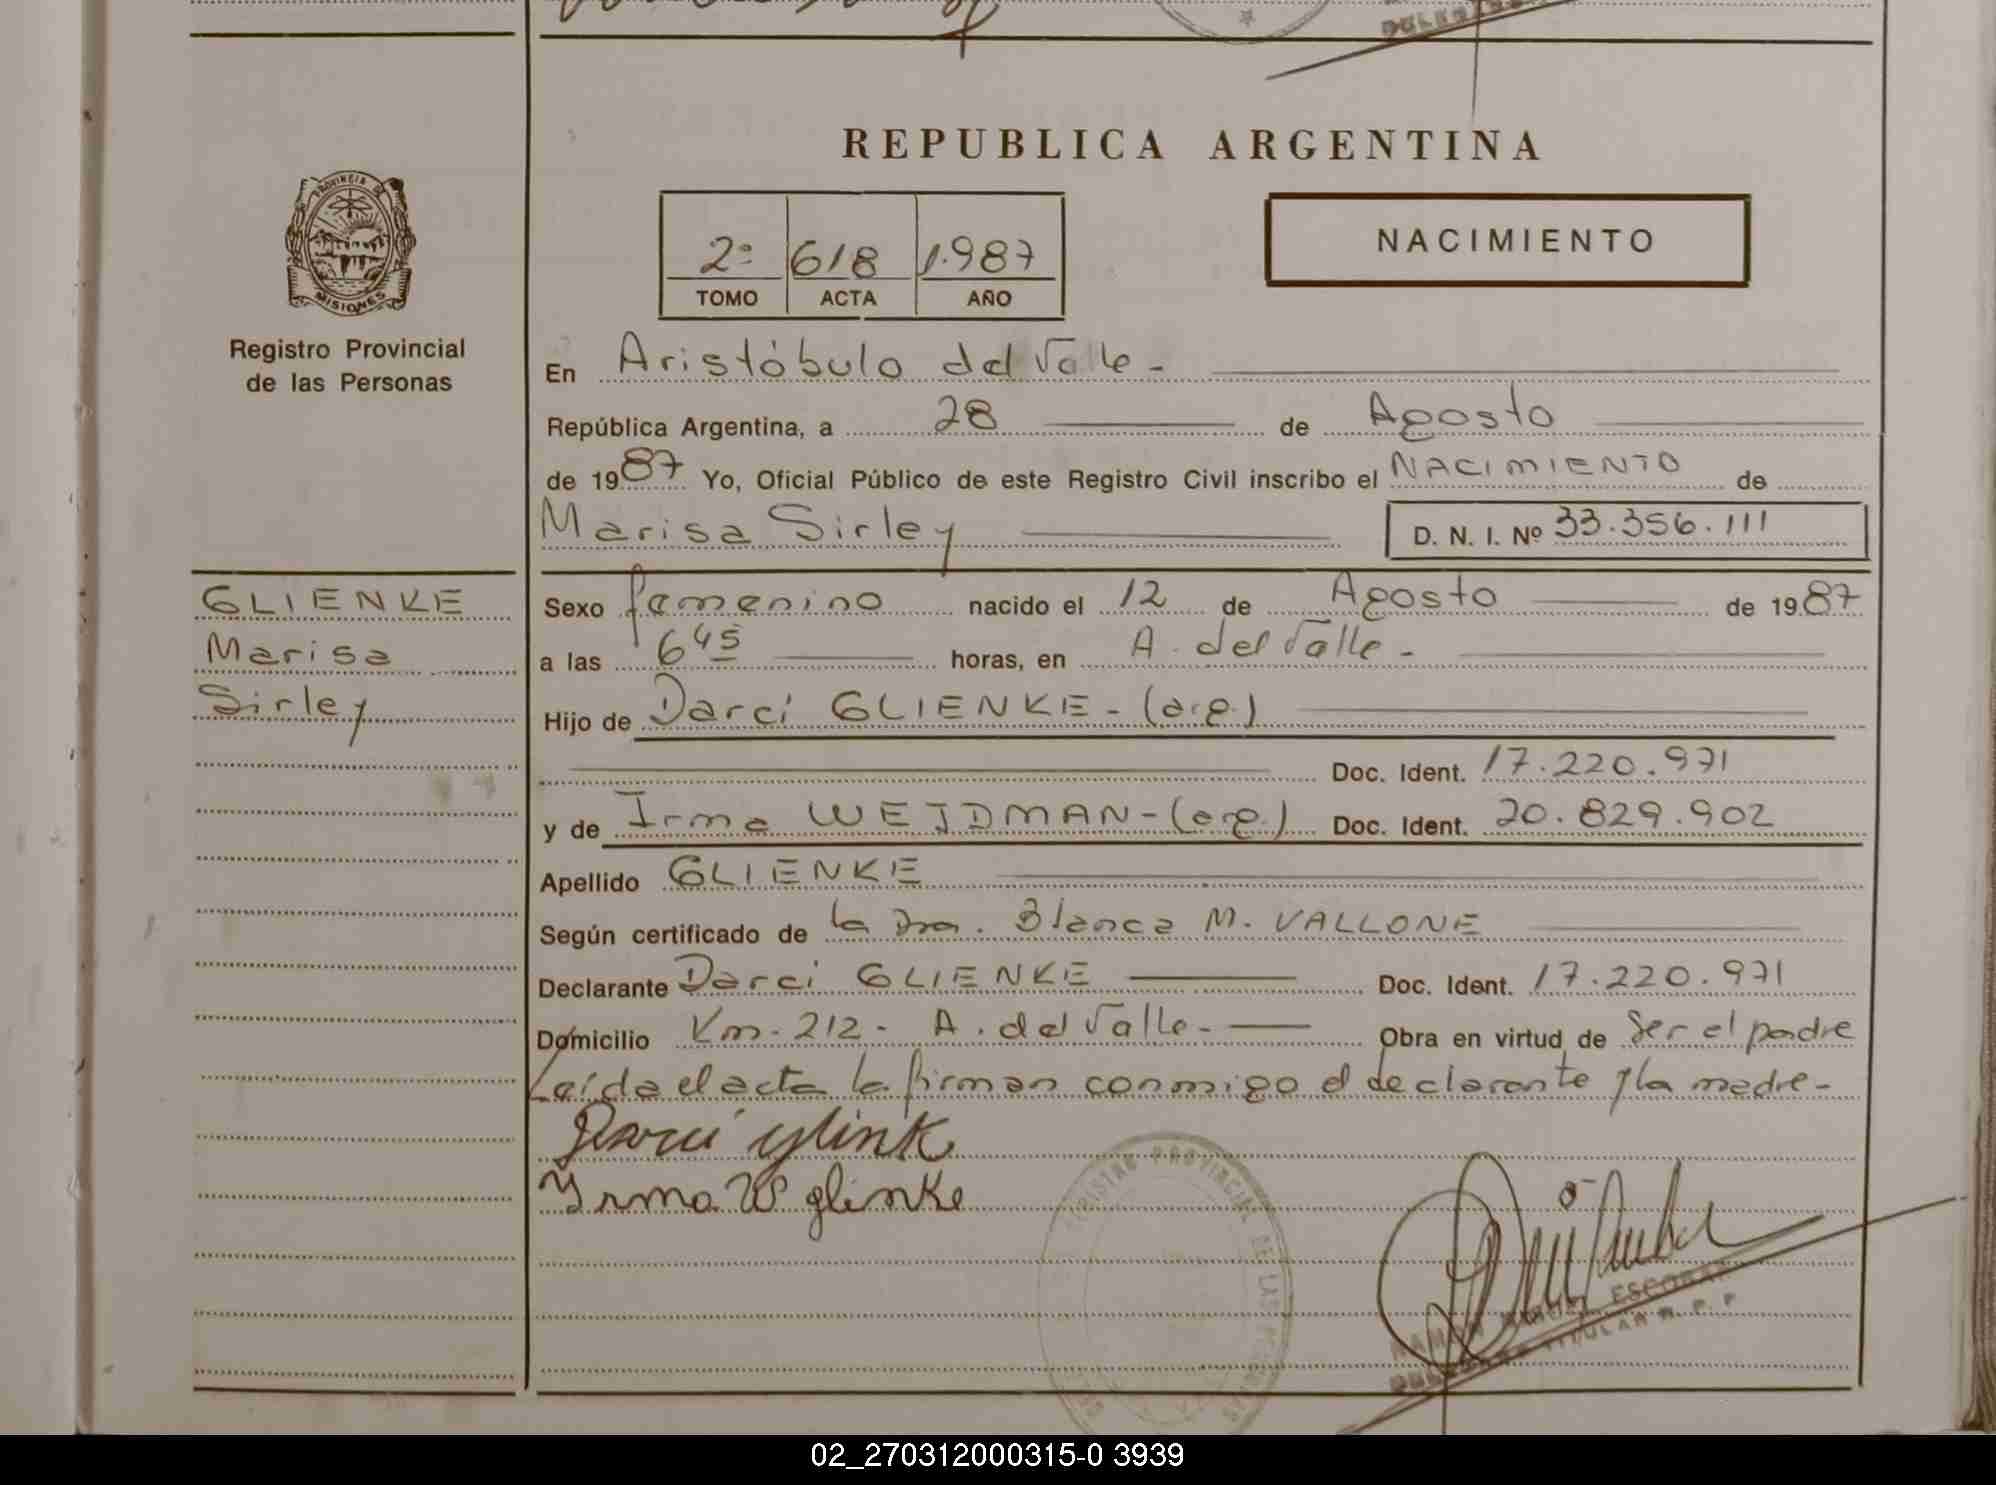 REPUBLICA ARGENTINA
PROVINCIA DE
MISIONES
Registro Provincial
de las Personas
2º 618 1.987
TOMO ACTA AÑO
NACIMIENTO
En Aristóbulo del Valle -
República Argentina, a 28 de Agosto
de 1987 Yo, Oficial Público de este Registro Civil inscribo el NACIMIENTO de
Marisa Sirley D. N. I. Nº 33.356.111
GLIENKE
Marisa
Sirley
Sexo femenino nacido el 12 de Agosto de 1987
a las 6 45 horas, en A. del Valle -
Hijo de Darci GLIENKE - (arg.)
Doc. Ident. 17.220.971
y de Irma WEIDMAN - (arg.) Doc. Ident. 20.829.902
Apellido GLIENKE
Según certificado de la Dra. Blanca M. VALLONE
Declarante Darci GLIENKE Doc. Ident. 17.220.971
Domicilio Km - 212 - A. del Valle - Obra en virtud de Ser el padre
Leída el acta la firman conmigo el declarante y la madre -
Darci glink
Yrma W glienke
REGISTRO PROVINCIAL DE LAS PERSONAS
RAMON ESCOBAR
TITULAR R. P. P.
02_270312000315-0 3939